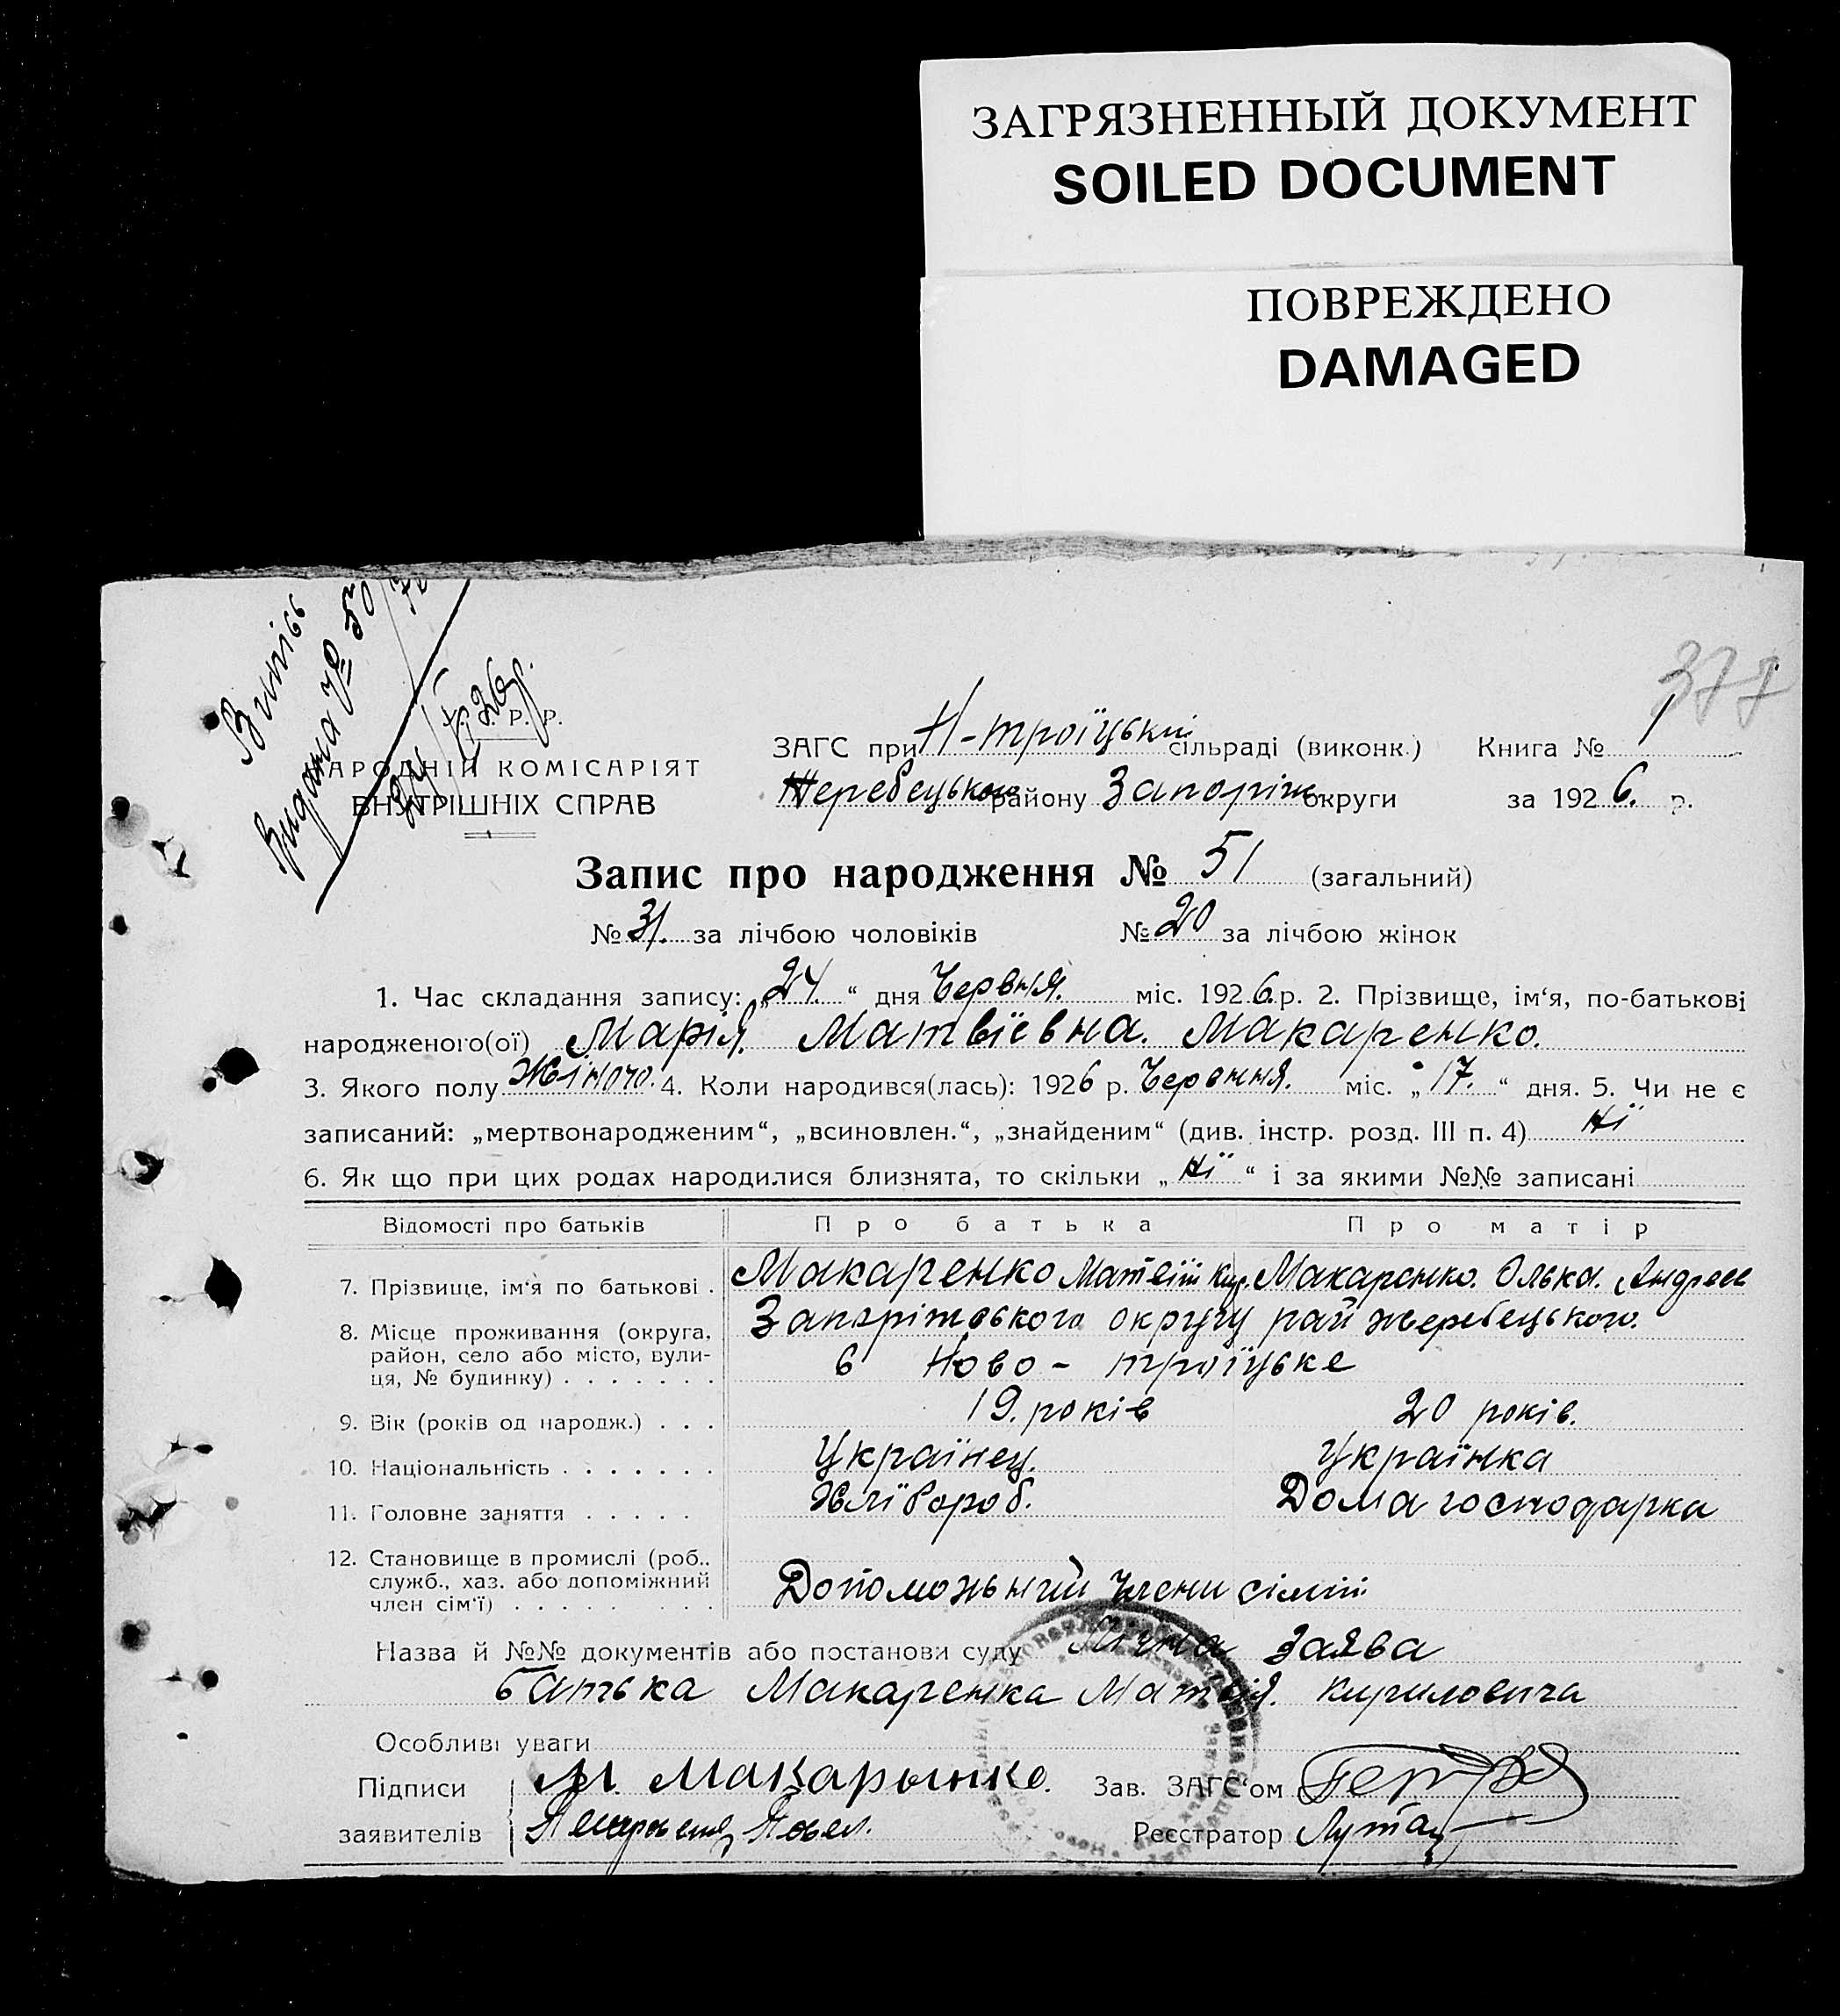 ЗАГРЯЗНЕННЫЙ ДОКУМЕНТ
SOILED DOCUMENT
ПОВРЕЖДЕНО
DAMAGED
377
Випись
Видана № 50
26р.
Р. Р.
НАРОДНІЙ КОМІСАРІЯТ
ВНУТРІШНІХ СПРАВ
ЗАГС при Н-троїцькій сільраді (виконк.) Книга № 1
Жеребецького району Запоріж округи за 1926. р.
Запис про народження № 51 (загальний)
№ 31. за лічбою чоловіків № 20 за лічбою жінок
1. Час складання запису: „24.“ дня Червня. міс. 1926.р. 2. Прізвище, ім‘я, по-батькові
народженого(ої) Марія. Матвїевна. Макаренко.
3. Якого полу Жіночо. 4. Коли народився(лась): 1926 р. Червння. міс. „17.“ дня. 5. Чи не є
записаний: „мертвонародженим“, „всиновлен.“, „знайденим“ (див. інстр. розд. III п. 4) Нї
6. Як що при цих родах народилися близнята, то скільки „Нї“ і за якими №№ записані
Відомості про батьків Про батька Про матір
7. Прізвище, ім‘я по батькові . Макаренко Матвій Кир. Макаренко. Олька. Андреев
8. Місце проживання (округа, район, село або місто, вулиця, № будинку) . . . . . . . Запорізського округу рай жеребецького.
в Ново-троїцьке
9. Вік (років од народж.) . . . 19. років 20 років.
10. Національність . . . . . . . Українец. Українка
11. Головне заняття . . . . . Хлїбороб. Дома господарка
12. Становище в промислі (роб., служб., хаз. або допоміжний член сім‘ї) . . . . . . . . Допоможьний члени сімїї
Назва й №№ документів або постанови суду Лична заява
батька Макаренка Матвія. Кириловича
Особливі уваги
Підписи заявителів М. Макарынко.
Зав. ЗАГС‘ом
Реєстратор Лутай